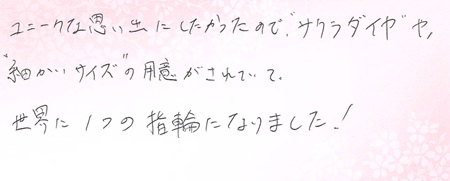 ユニークな思い出にしたかったので、"サクラダイヤ"や、
"細かいサイズ"の用意がされていて、
世界に1つの指輪になりました!